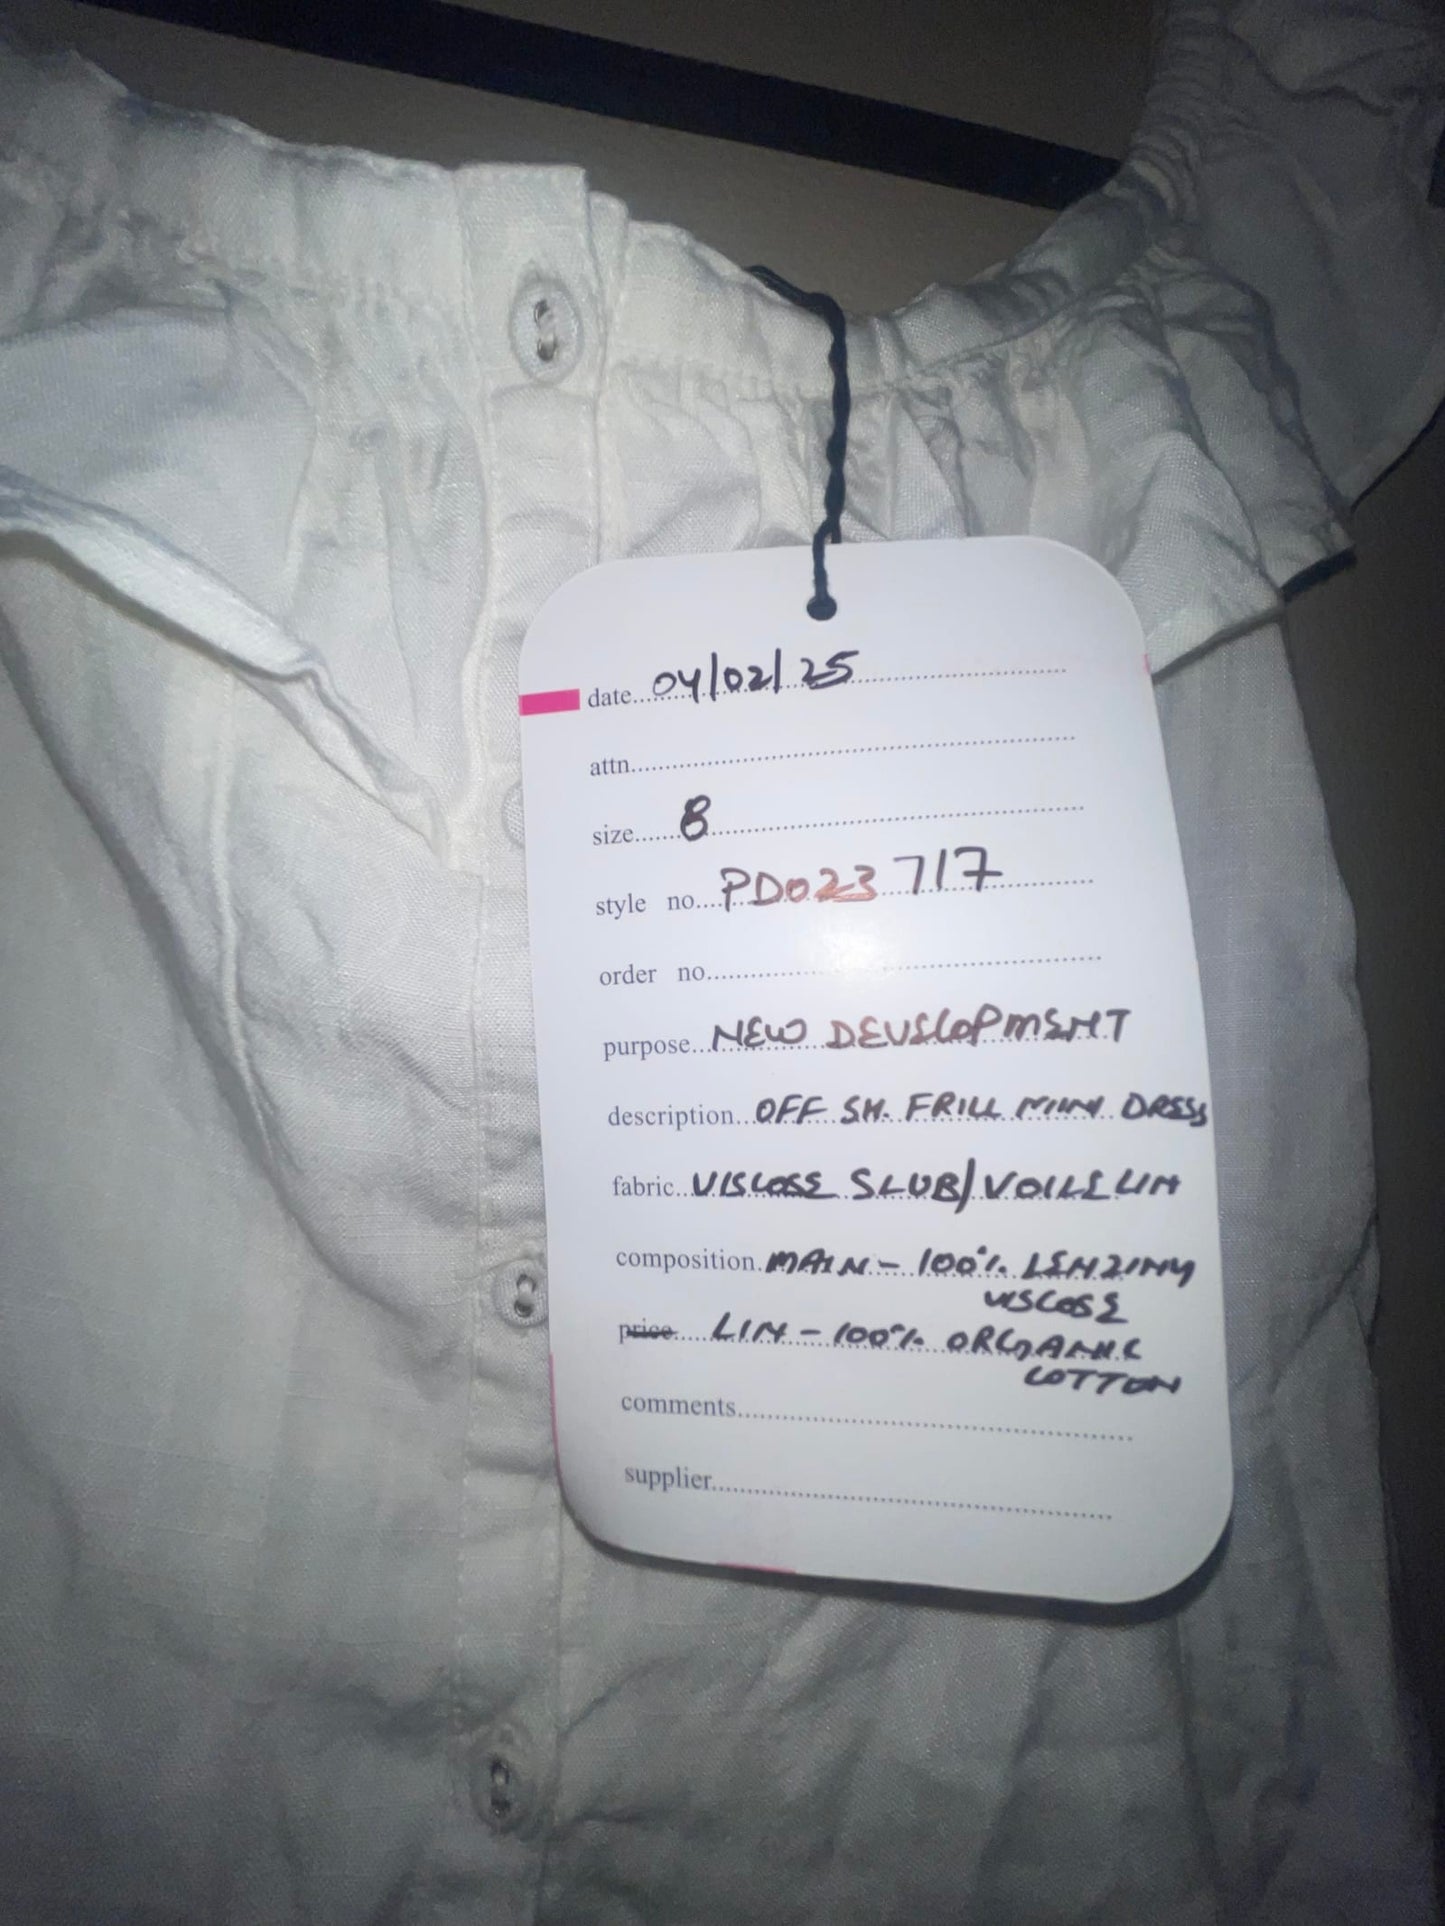 date 04/02/25
attn
size 8
style no PD023717
order no
purpose NEW DEVELOPMENT
description OFF SH. FRILL MINI DRESS
fabric VISCOSE SLUB/VOILE LIN
composition MAIN - 100% LENZING
VISCOSE
price LIN - 100% ORGANIC
COTTON
comments
supplier